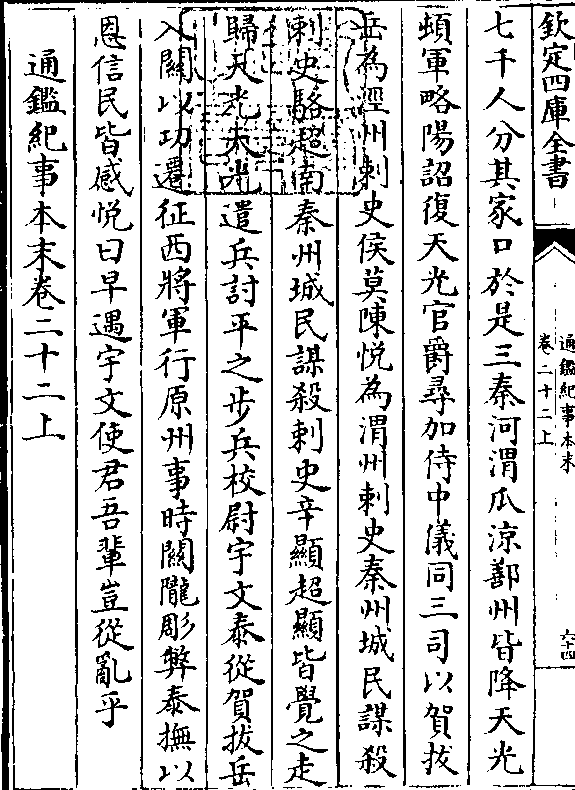 欽定四庫全書
通鑑紀事本末
卷二十二上
六十四
七千人分其家口於是三秦河渭瓜涼鄯州皆降天光
頓軍略陽詔復天光官爵尋加侍中儀同三司以賀拔
岳為涇州刺史侯莫陳悅為渭州刺史秦州城民謀殺
刺史駱超南秦州城民謀殺刺史辛顯超顯皆覺之走
歸天光天光遣兵討平之步兵校尉宇文泰從賀拔岳
入關以功遷征西將軍行原州事時關隴彫弊泰撫以
恩信民皆感悅曰早遇宇文使君吾輩豈從亂乎
通鑑紀事本末卷二十二上